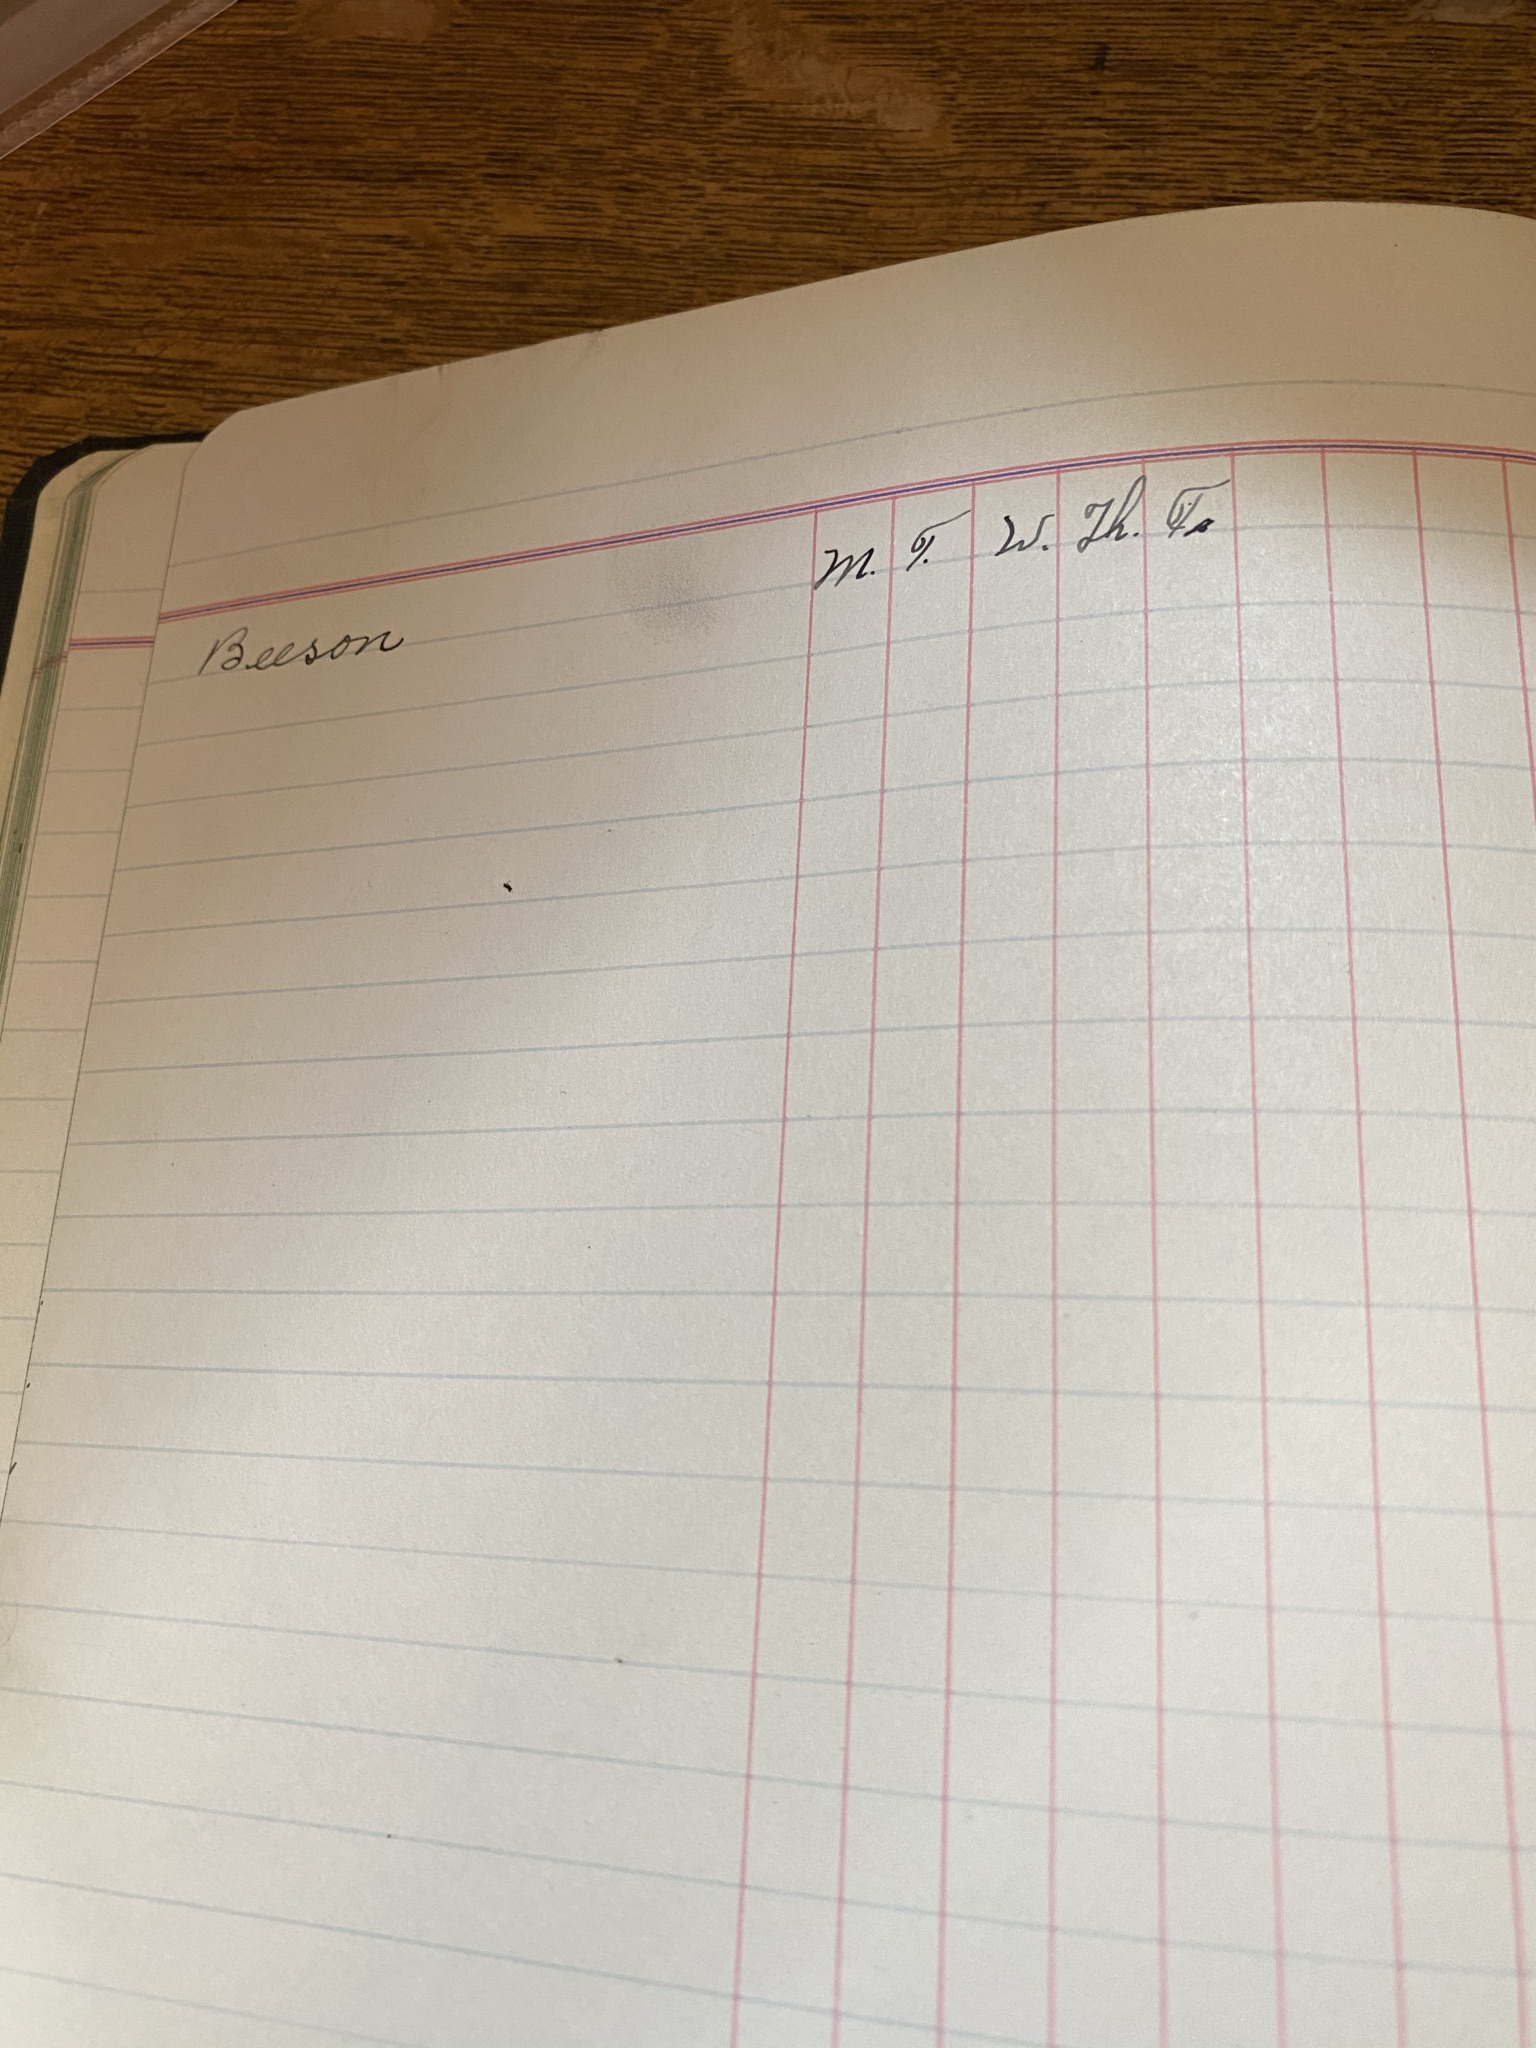 M. T. W. Th. F.
Beeson